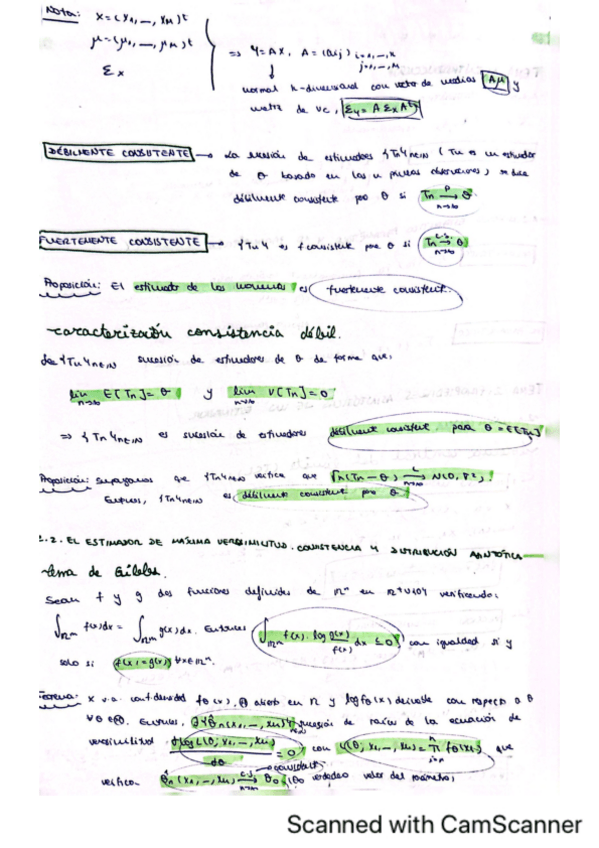 Nota: X=(X1,—,Xn)t
μ=(μ1,—,μn)t
Σx
=> Y=AX, A=(aij) i=1,—,k
j=1,—,n
normal k-dimensional con vector de medias Aμ y
matriz de vc, Σy = A Σx At
DÉBILMENTE CONSISTENTE → La sucesión de estimadores {Tn}n∈N (Tn es un estimador
de θ basado en las n primeras observaciones) se dice
débilmente consistente para θ si Tn P→ n→∞ θ
FUERTEMENTE CONSISTENTE → {Tn} es f consistente para θ si Tn c.s.→ n→∞ θ
Proposición: El estimador de los momentos es fuertemente consistente.
caracterización consistencia débil.
Sea {Tn}n∈N sucesión de estimadores de θ de forma que:
lim n→∞ E[Tn]=θ y lim n→∞ V[Tn]=0
=> {Tn}n∈N es sucesión de estimadores débilmente consistent. para θ = E[Tn]
Proposición: Supongamos que {Tn}n∈N verifica que √n(Tn-θ) L→ n→∞ N(0, σ²);
Entonces, {Tn}n∈N es débilmente consistente para θ
2.2. EL ESTIMADOR DE MÁXIMA VEROSIMILITUD. CONSISTENCIA Y DISTRIBUCIÓN ASINTÓTICA
Lema de Gibbs.
Sean f y g dos funciones definidas de Rn en R+∪{0} verificando:
∫Rn f(x)dx = ∫Rn g(x)dx. Entonces ∫Rn f(x) · log g(x)/f(x) dx ≤ 0 con igualdad si y
solo si f(x)=g(x) ∀x∈Rn.
Teorema: X v.a. cont. densidad fθ(x), Θ abierto en R y log fθ(x) derivable con respecto a θ
∀θ∈Θ. Entonces, ∃{θ̂n(X1,—,Xn)} sucesión de raíces de la ecuación de
verosimilitud ∂log L(θ; X1,—,Xn)/∂θ = 0 con L(θ; X1,—,Xn) = π fθ(Xi) que
consistent.
verifica θ̂n(X1,—,Xn) c.s.→ n→∞ θ0 (θ0 verdadero valor del parámetro)
Scanned with CamScanner